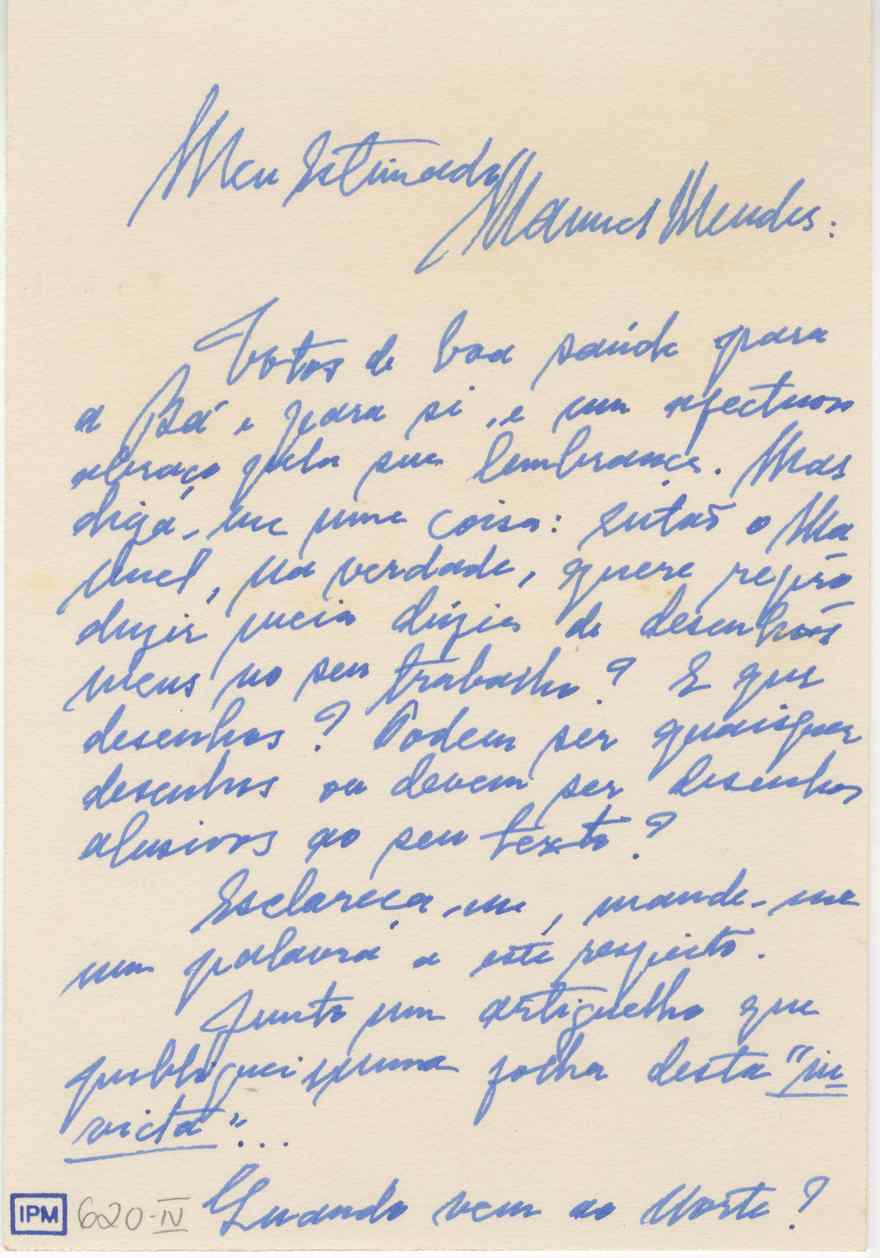 Meu Estimado
Manuel Mendes:
Votos de boa saúde para
a Bá e para si, e um afectuoso
abraço pela sua lembrança. Mas
diga-me uma coisa: então o Ma
nuel, na verdade, quere repro
duzir meia dúzia de desenhos
meus no seu trabalho? E que
desenhos? Podem ser quaisquer
desenhos ou devem ser desenhos
alusivos ao seu texto?
Esclareça-me, mande-me
uma palavra a este respeito.
Junto um artiguelho que
publiquei numa folha desta "in
victa"...
Quando vem ao Norte?
IPM 620-IV